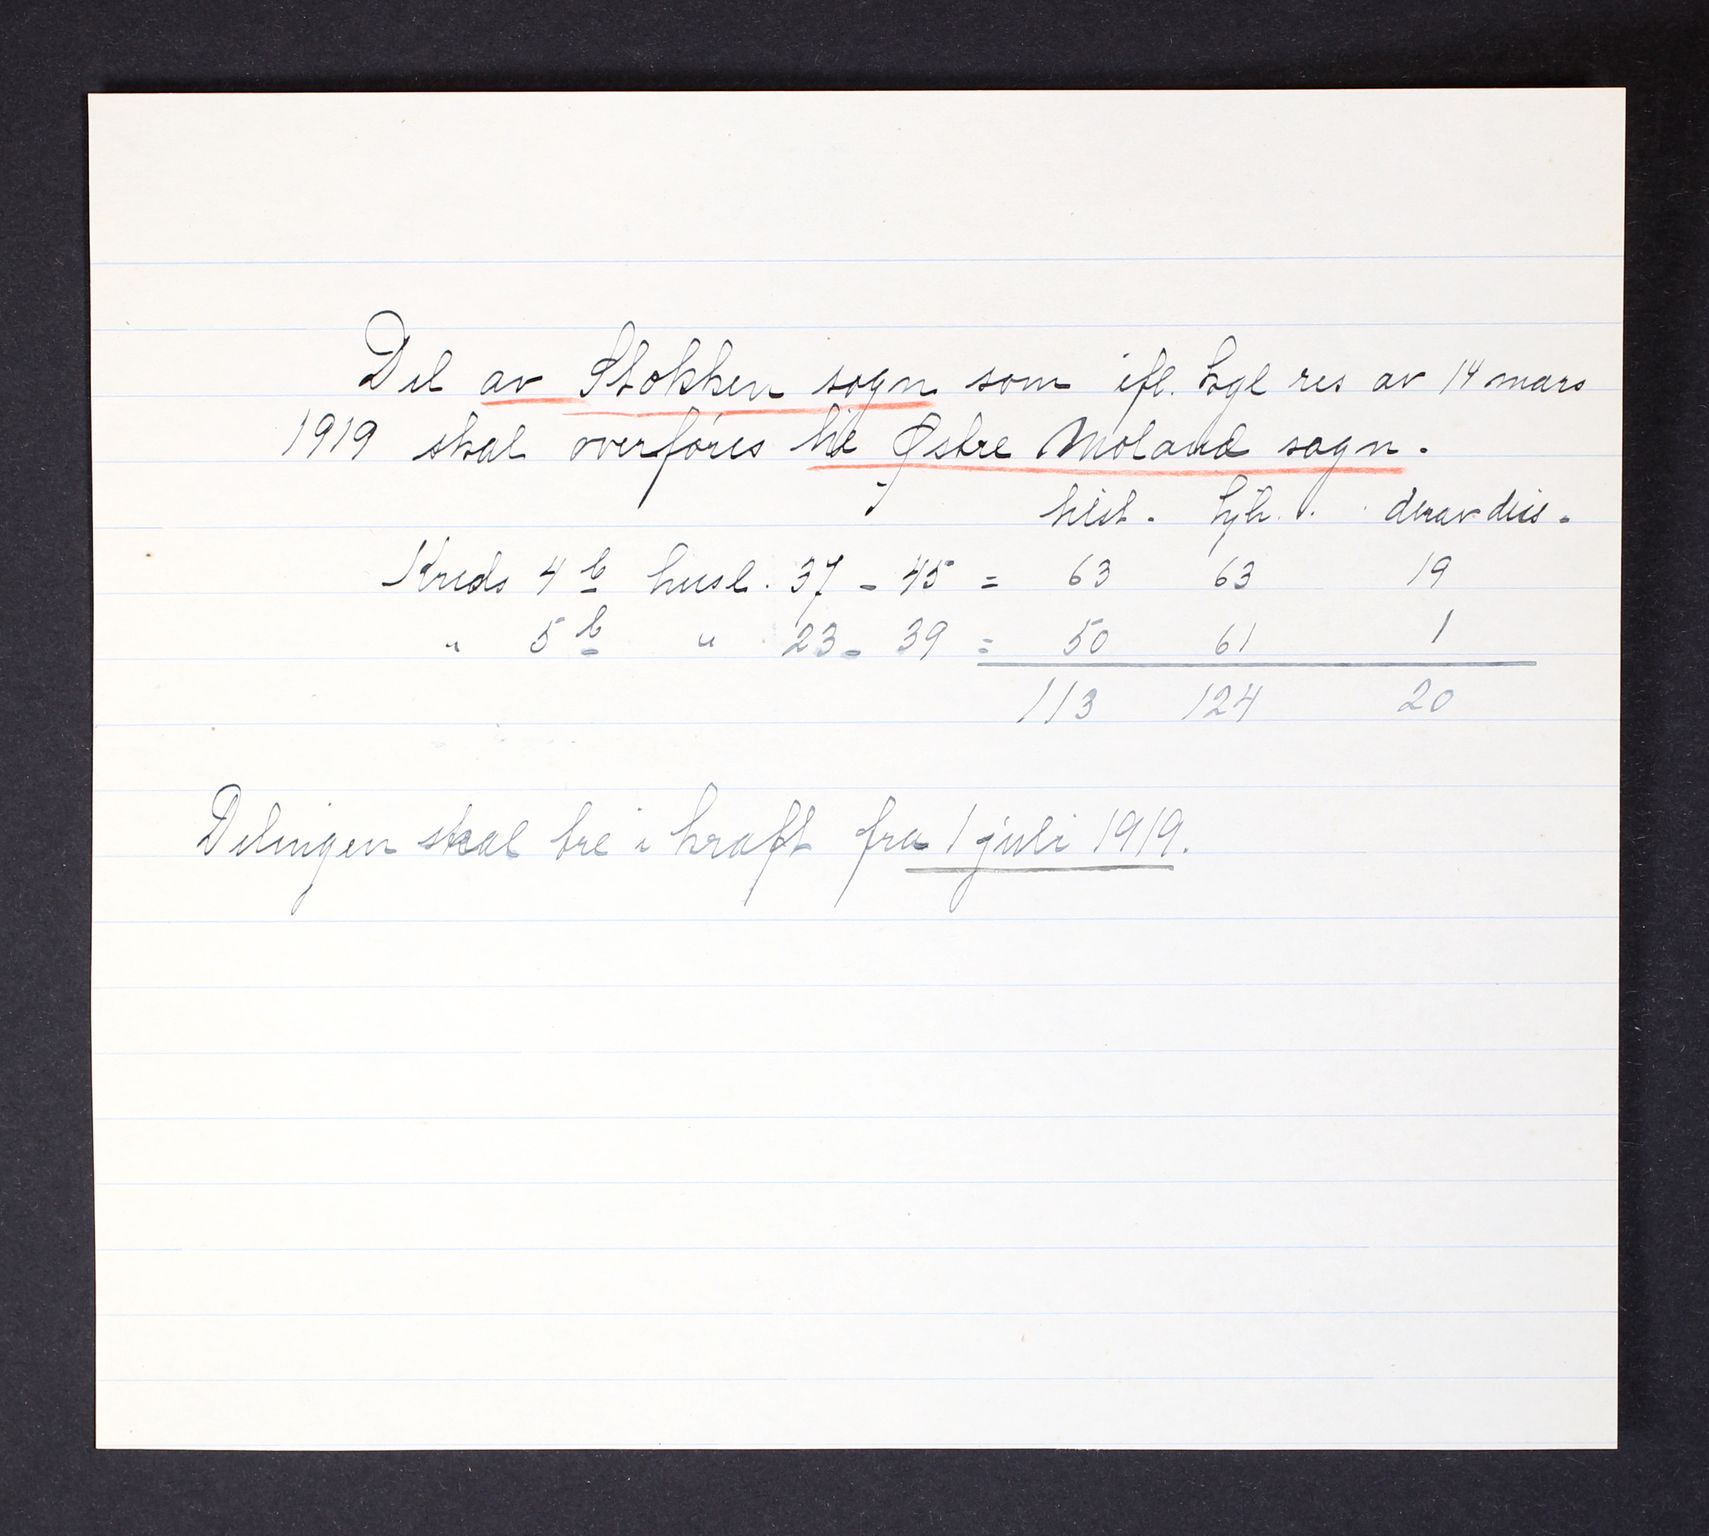 Del av Stokken sogn som ifl. kgl res av 14 mars
1919 skal overføres til Østre Moland sogn.
tilst. hjh. . derav diss.
Kreds 4 b husl. 37 - 45 = 63 63 19
" 5 b " 23 - 39 = 50 61 1
113 124 20
Delingen skal tre i kraft fra 1 juli 1919.